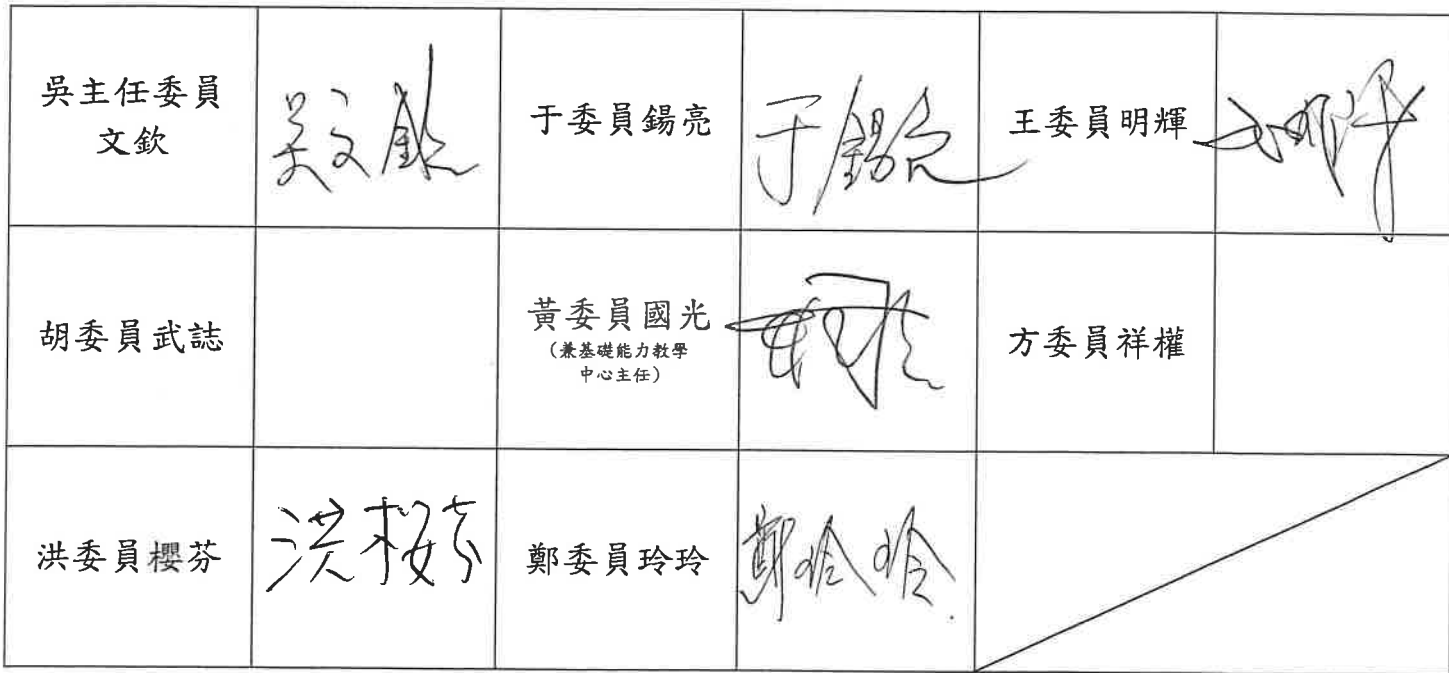 吳主任委員
文欽
吳文欽
于委員錫亮
于錫亮
王委員明輝
王明輝
胡委員武誌
黃委員國光
(兼基礎能力教學
中心主任)
方委員祥權
洪委員櫻芬
洪櫻芬
鄭委員玲玲
鄭玲玲